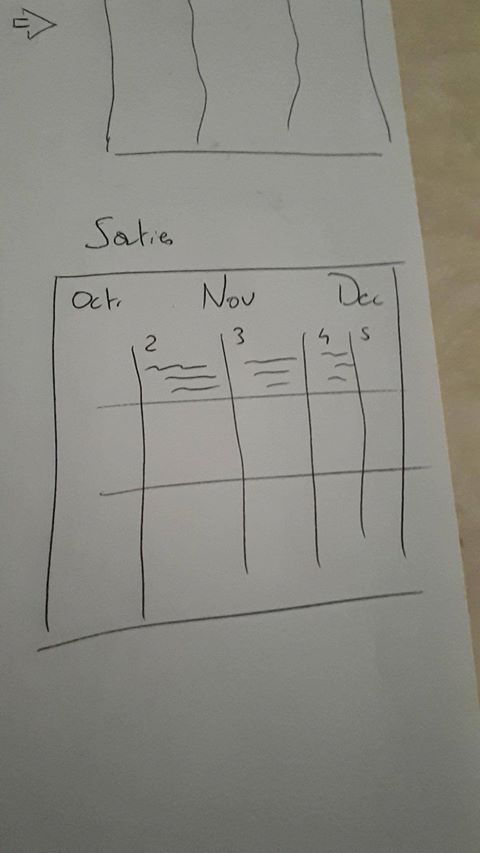 Sorties
Oct. Nov Dec
2 3 4 5